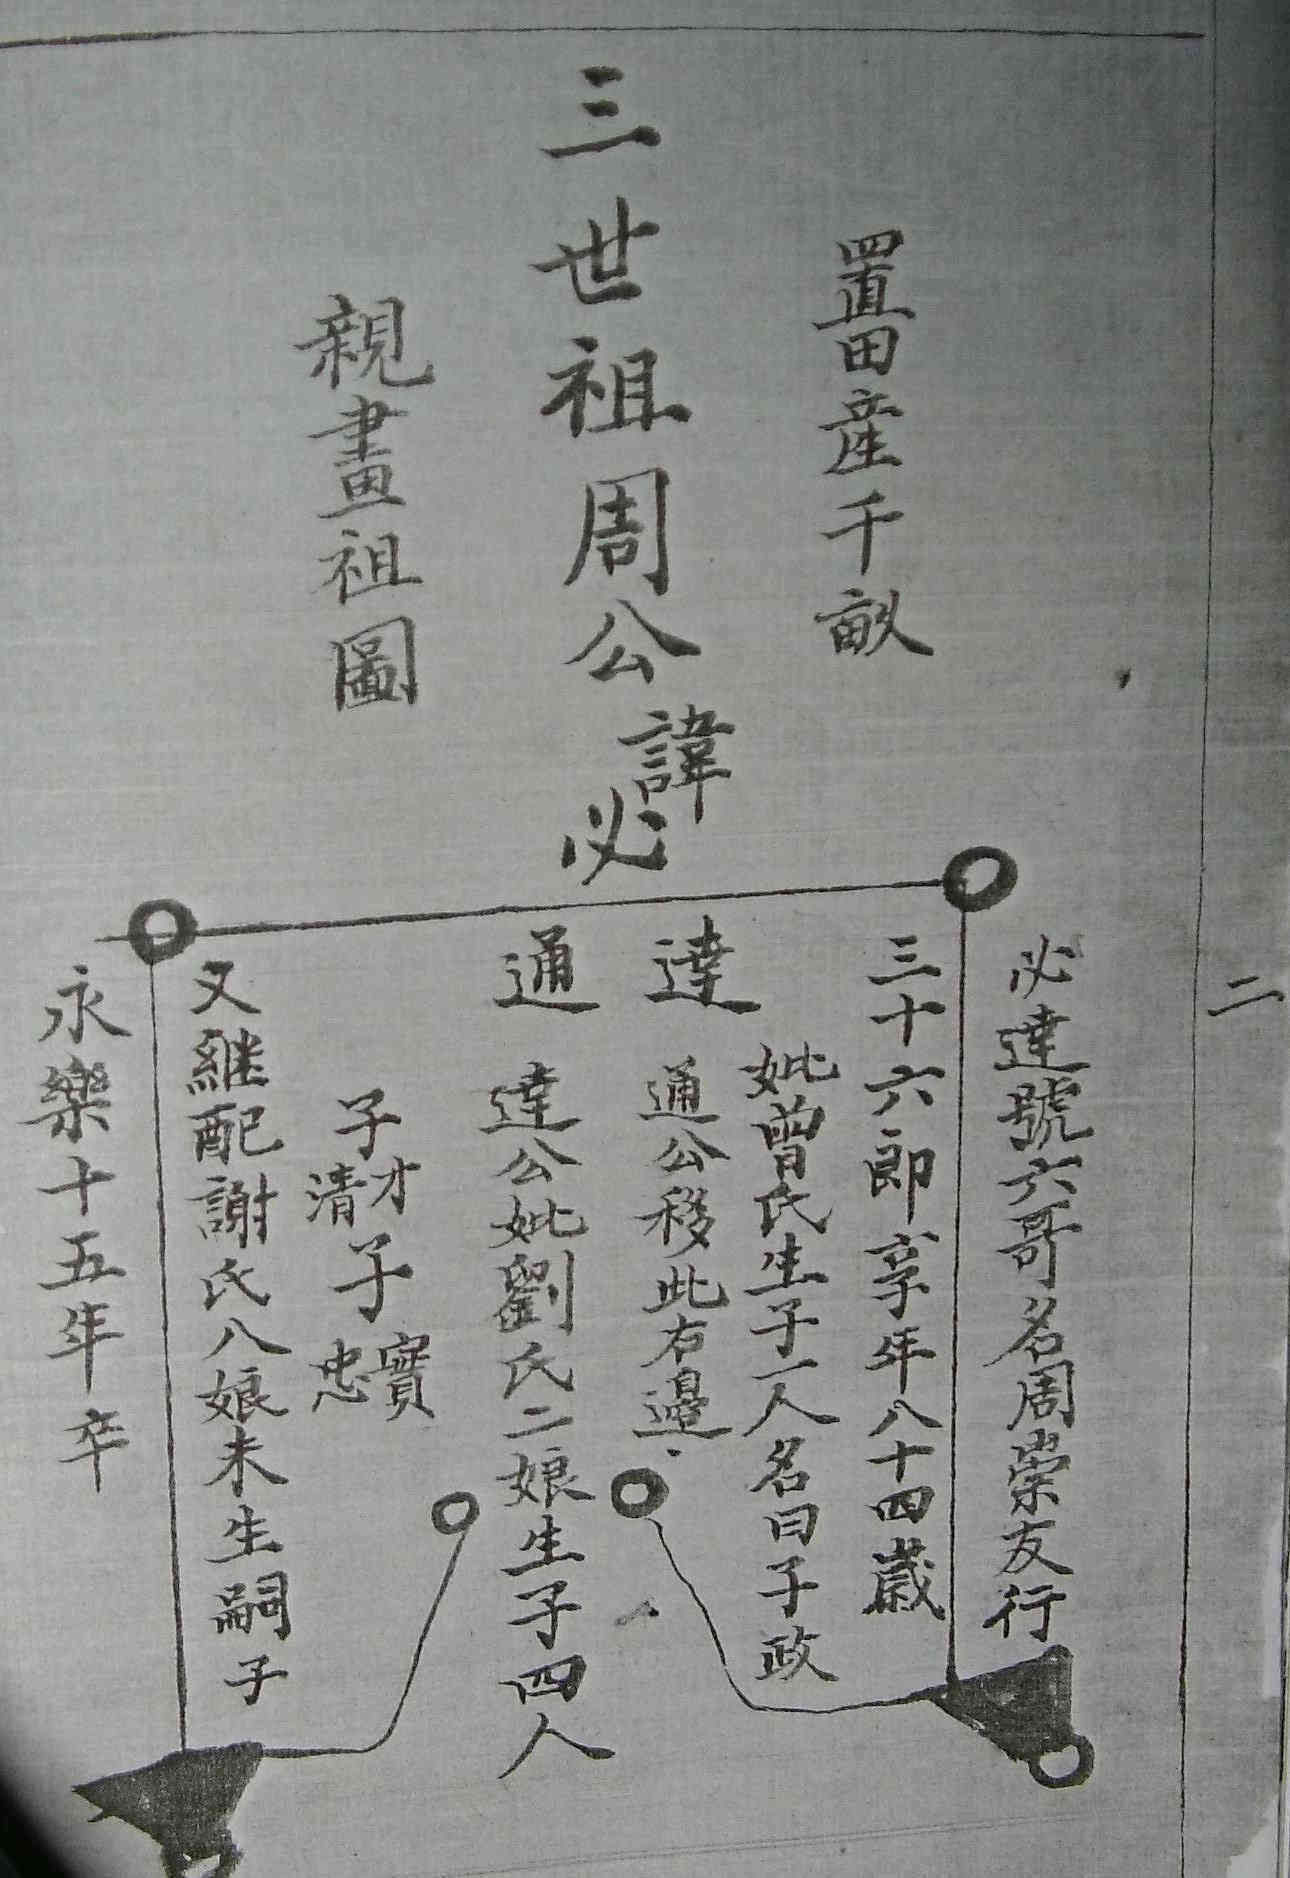 二
置田産千畝
三世祖周公諱必
親畫祖圖
必達號六哥名周崇友行
三十六郎享年八十四歳
妣曾氏生子一人名曰子政
達
通公移此右邊
通
達公妣劉氏二娘生子四人
子才
子清
子實
子忠
又継配謝氏八娘未生嗣子
永樂十五年卒